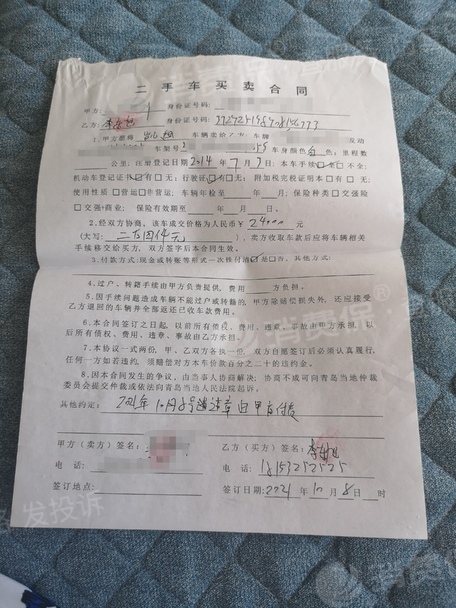 二手车买卖合同
甲方: 身份证号码:
乙方: 身份证号码:
1.甲方愿将 车辆卖给乙方; 车牌 及动
车架号 车身颜色白色; 里程数
公里; 注册登记日期2014年7月7日; 本车手续全 不全;
机动车登记证书有 无; 行驶证有 无; 附加税完税证明本有 无;
使用性质 营运 非营运; 车辆年检至 年 月; 保险种类 交强险
交强+商业; 保险有效期至 年 月 日。
2.经双方协商, 该车成交价格为人民币¥24000元
(大写: 二万四仟元), 卖方收取车款后应将车辆相关
手续移交给买方, 双方签字后本合同生效。
3.付款方式:现金或转账等形式一次性付清 是 否, 其他方式:
4.过户、转籍手续由甲方负责提供, 费用 方负担。
5.因手续问题造成车辆不能过户或转籍的, 甲方除赔偿损失外, 还应接受
乙方退回的车辆并全部返还已收车款费用。
6.本合同签订之日起, 以前所有债务、费用、违章、事故由甲方承担, 以
后所有债权、费用、违章、事故由乙方承担。
7.本协议一式两份, 甲、乙双方各执一份, 双方自愿签订后必须认真履行,
任何一方如若违约, 须赔偿对方本车价款百分之二十的违约金。
8.因本合同发生的争议, 由当事人协商解决; 协商不成可向青岛当地仲裁
委员会提交仲裁或依法向青岛当地人民法院起诉。
其他约定: 2021年10月8号前违章由甲方付责
甲方(卖方)签名: 乙方(买方)签名:
电话: 电话: 18153252525
签订地点: 签订日期:2021年10月8日 时
消费保
发投诉
消费保